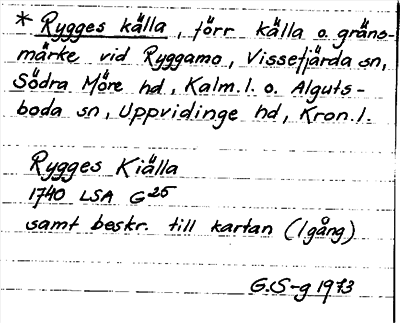 * Rygges källa, förr källa o. gräns-
märke vid Ryggamo, Vissefjärda sn,
Södra Möre hd, Kalm. l. o. Alguts-
boda sn, Uppvidinge hd, Kron. l.
Rygges Kiälla
1740 LSA G25
samt beskr. till kartan (1 gång)
G.S-g 1973